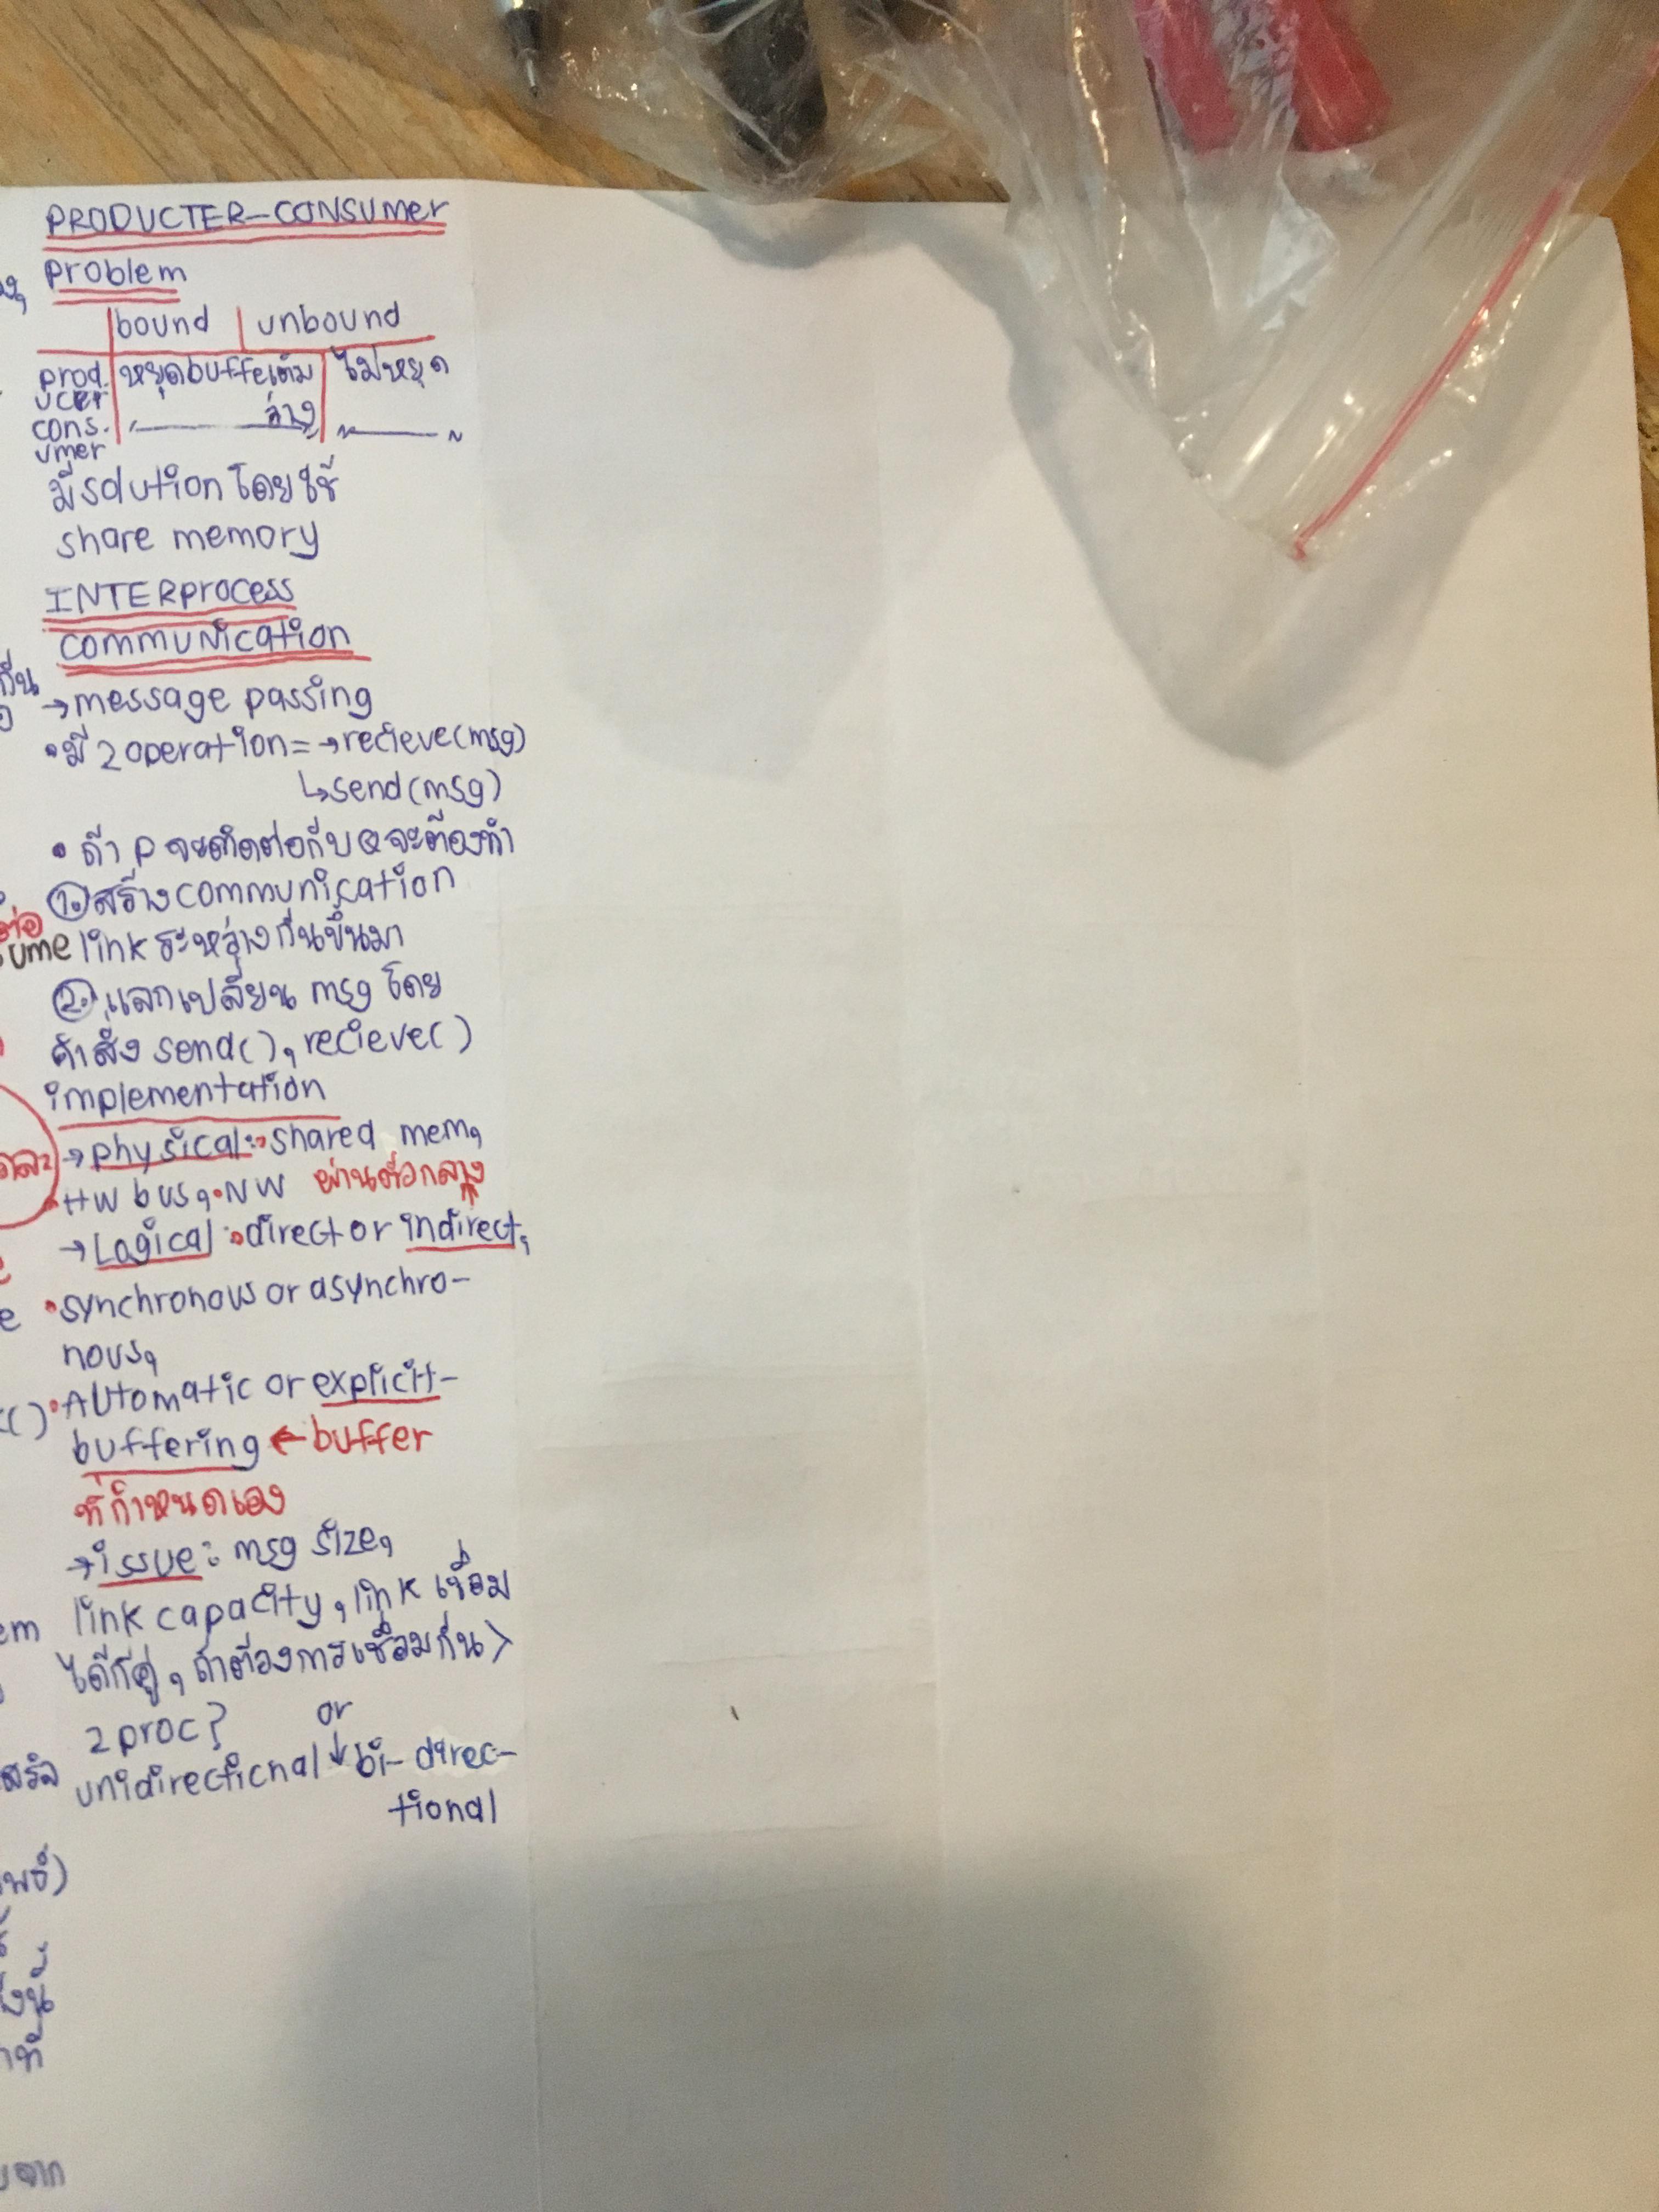 PRODUCTER-CONSUMER
problem
bound unbound
prod. หยุดbuffeเต็ม ไม่หยุด
ucer
cons. ว่าง
umer
มีsolutionโดยใช้
share memory
INTERprocess
communication
→message passing
•มี 2 operation= →recieve(msg)
↳send(msg)
• ถ้า P จะติดต่อกับ Q จะต้องทำ
①สร้างcommunication
link ระหว่างกันขึ้นมา
②แลกเปลี่ยน msg โดย
คำสั่ง send(), recieve()
implementation
→physical: shared mem,
HW bus, NW ผ่านตัวกลาง
→Logical: direct or indirect,
•synchronous or asynchro-
nous,
•Automatic or explicit-
buffering ←buffer
ที่กำหนดเอง
→issue: msg size,
link capacity, link เชื่อม
ได้กี่คู่, ถ้าต้องการเชื่อมกัน>
2 proc? or
unidirectional ↓ bi-direc-
tional